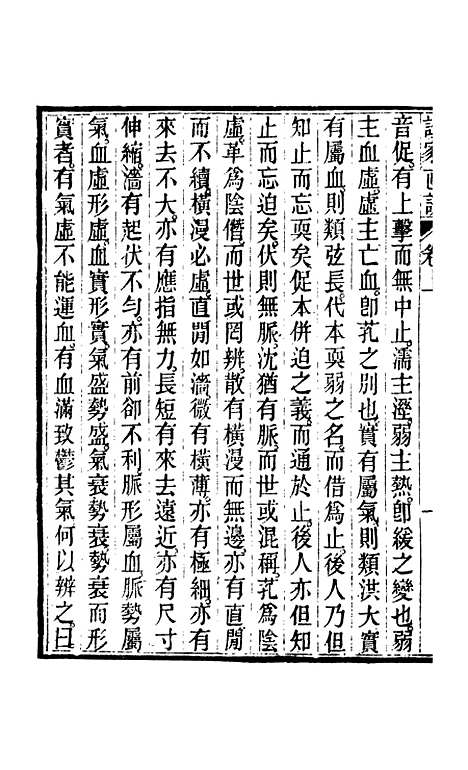 診家直訣 卷上
音促。有上擊而無中止。濡主溼。弱主熱。卽緩之變也。弱
主血虛。虛主亡血。卽芤之別也。實有屬氣。則類洪大實
有屬血。則類弦長。代本耎弱之名。而借爲止。後人乃但
知止而忘耎矣。促本併迫之義。而通於止。後人亦但知
止而忘迫矣。伏則無脈。沈猶有脈。而世或混稱。芤爲陰
虛。革爲陰僭。而世或罔辨。散有橫漫而無邊。亦有直閒
而不續。橫漫必虛。直閒如滴。微有橫薄。亦有極細。亦有
來去不大。亦有應指無力。長短有來去遠近。亦有尺寸
伸縮。濇有起伏不勻。亦有前卻不利。脈形屬血。脈勢屬
氣。血虛形虛。血實形實。氣盛勢盛。氣衰勢衰。勢衰而形
實者。有氣虛不能運血。有血滿致鬱其氣。何以辨之。曰